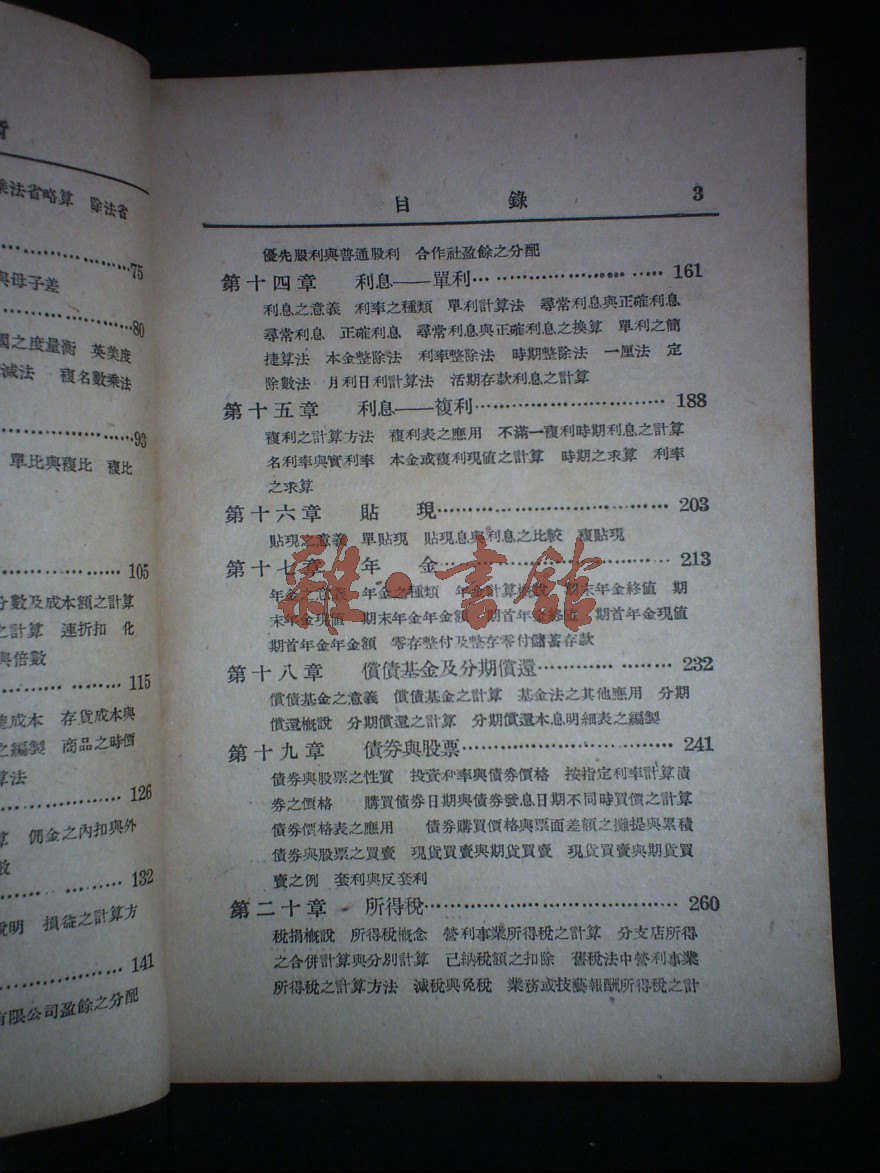 乘法省略算　除法省
75
與母子差
80
國之度量衡　英美度
減法　複名數乘法
93
單比與複比　複比
105
分數及成本額之計算
之計算　連折扣　化
與倍數
115
總成本　存貨成本與
之編製　商品之時價
算法
126
算　佣金之內扣與外
數
132
說明　損益之計算方
141
有限公司盈餘之分配
目　錄　3
優先股利與普通股利　合作社盈餘之分配
第十四章　利息——單利……………………161
利息之意義　利率之種類　單利計算法　尋常利息與正確利息
尋常利息　正確利息　尋常利息與正確利息之換算　單利之簡
捷算法　本金整除法　利率整除法　時期整除法　一厘法　定
除數法　月利日利計算法　活期存款利息之計算
第十五章　利息——複利……………………188
複利之計算方法　複利表之應用　不滿一複利時期利息之計算
名利率與實利率　本金或複利現值之計算　時期之求算　利率
之求算
第十六章　貼　現……………………203
貼現之意義　單貼現　貼現息與利息之比較　複貼現
第十七章　年　金……………………213
年金之意義　年金之種類　年金計算概說　期末年金終值　期
末年金現值　期末年金年金額　期首年金終值　期首年金現值
期首年金年金額　零存整付及整存零付儲蓄存款
第十八章　償債基金及分期償還……………………232
償債基金之意義　償債基金之計算　基金法之其他應用　分期
償還概說　分期償還之計算　分期償還本息明細表之編製
第十九章　債券與股票……………………241
債券與股票之性質　投資利率與債券價格　按指定利率計算債
券之價格　購買債券日期與債券發息日期不同時買價之計算
債券價格表之應用　債券購買價格與票面差額之攤提與累積
債券與股票之買賣　現貨買賣與期貨買賣　現貨買賣與期貨買
賣之例　套利與反套利
第二十章　所得稅……………………260
稅捐概說　所得稅概念　營利事業所得稅之計算　分支店所得
之合併計算與分別計算　已納稅額之扣除　舊稅法中營利事業
所得稅之計算方法　減稅與免稅　業務或技藝報酬所得稅之計
雜·書館